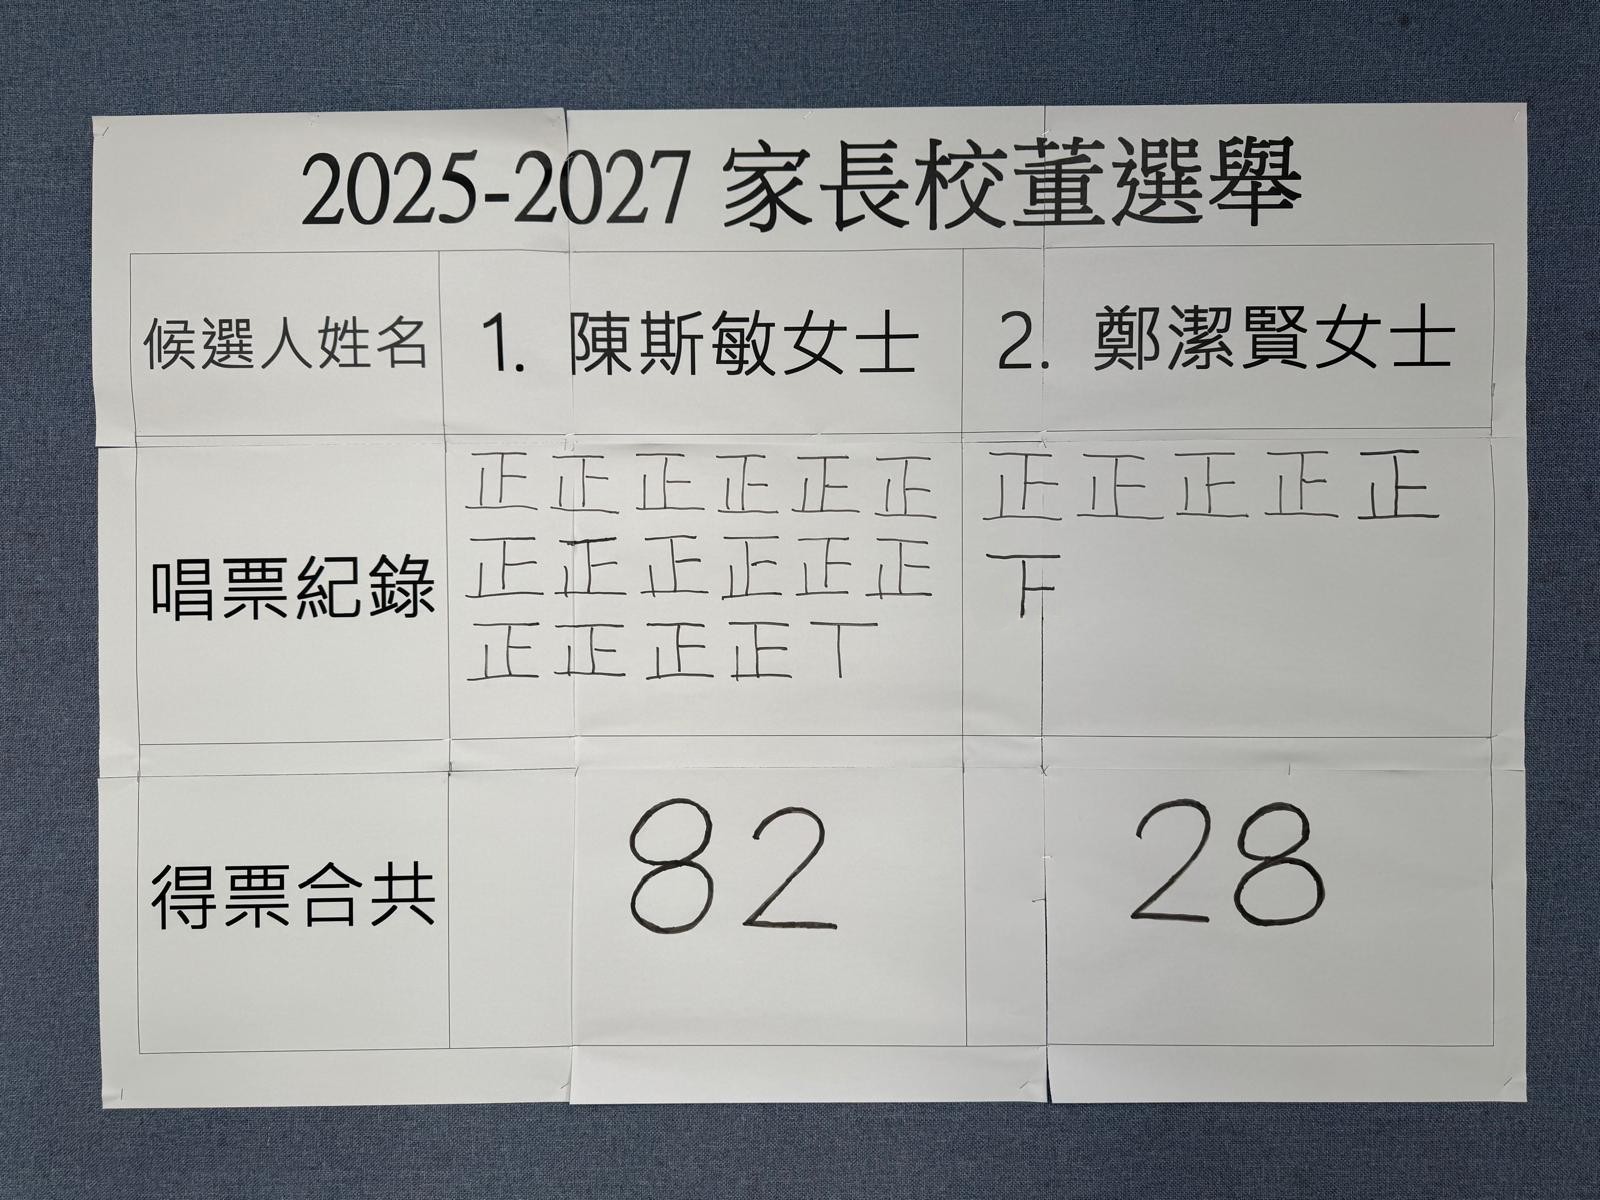 2025-2027 家長校董選舉
候選人姓名 1. 陳斯敏女士 2. 鄭潔賢女士
唱票紀錄
正正正正正正 正正正正正
正正正正正正 下
正正正正丅
得票合共 82 28